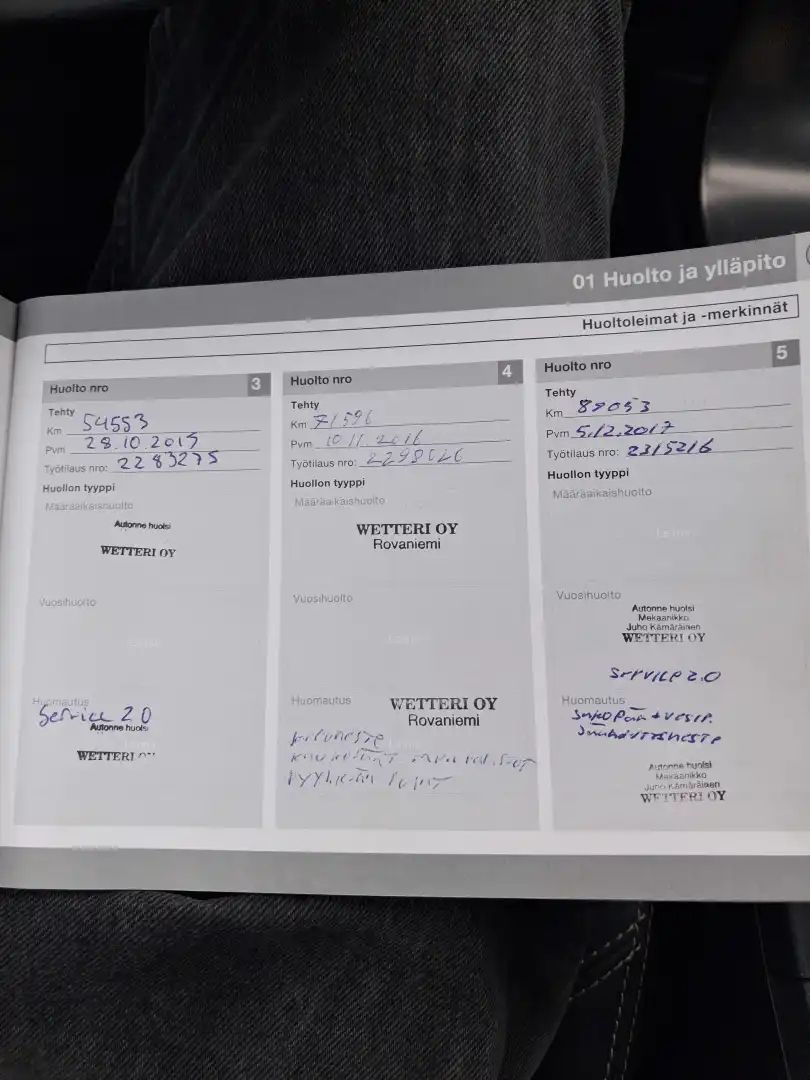 01 Huolto ja ylläpito
Huoltoleimat ja -merkinnät
Huolto nro 3
Tehty
Km 54553
Pvm 28.10.2015
Työtilaus nro: 2283275
Huollon tyyppi
Määräaikaishuolto
Autonne huolsi
WETTERI OY
Vuosihuolto
Leima
Huomautus
Service 2.0
Autonne huolsi
WETTERI OY
Huolto nro 4
Tehty
Km 71596
Pvm 10.11.2016
Työtilaus nro:
Huollon tyyppi
Määräaikaishuolto
WETTERI OY
Rovaniemi
Vuosihuolto
Leima
Huomautus
WETTERI OY
Rovaniemi
Huolto nro 5
Tehty
Km 89053
Pvm 5.12.2017
Työtilaus nro: 2315216
Huollon tyyppi
Määräaikaishuolto
Leima
Vuosihuolto
Autonne huolsi
Mekaanikko
Juho Kämäräinen
WETTERI OY
Service 2.0
Huomautus
Jäähdytysneste
Autonne huolsi
Mekaanikko
Juho Kämäräinen
WETTERI OY